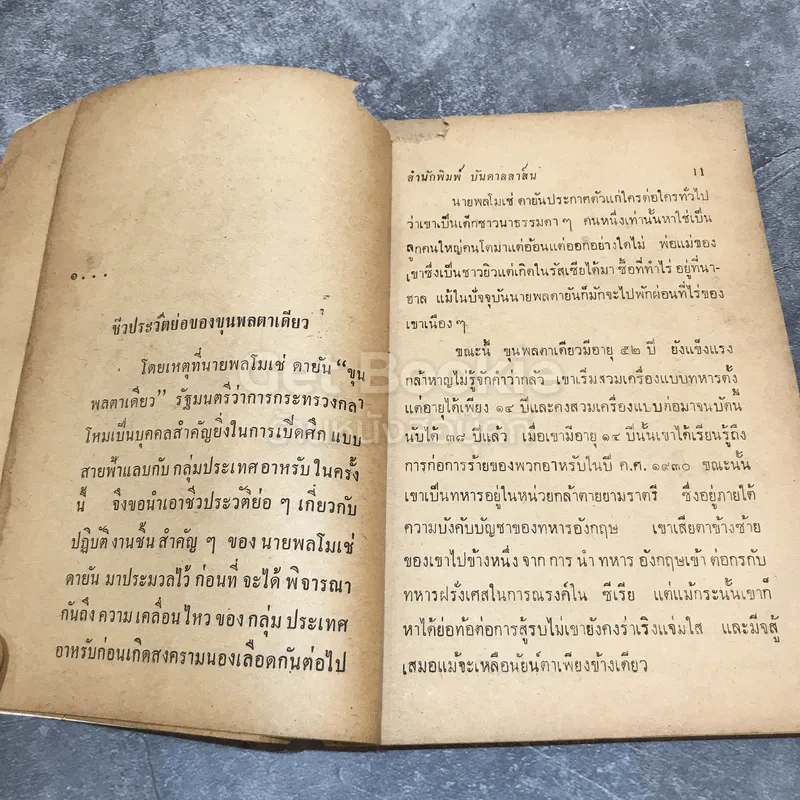 ๑...
ชีวประวัติย่อของขุนพลตาเดียว
โดยเหตุที่นายพลโมเช่ ดายัน “ขุน
พลตาเดียว” รัฐมนตรีว่าการกระทรวงกลา
โหมเป็นบุคคลสำคัญยิ่งในการเปิดศึก แบบ
สายฟ้าแลบกับ กลุ่มประเทศอาหรับ ในครั้ง
นี้ จึงขอนำเอาชีวประวัติย่อ ๆ เกี่ยวกับ
ปฏิบัติงานชิ้น สำคัญ ๆ ของ นายพลโมเช่
ดายัน มาประมวลไว้ ก่อนที่ จะได้ พิจารณา
กันถึง ความ เคลื่อน ไหว ของ กลุ่ม ประเทศ
อาหรับก่อนเกิดสงครามนองเลือดกันต่อไป
สำนักพิมพ์ บันดาลสาส์น 11
นายพลโมเช่ ดายันประกาศตัวแก่ใครต่อใครทั่วไป
ว่าเขาเป็นเด็กชาวนาธรรมดา ๆ คนหนึ่งเท่านั้นหาใช่เป็น
ลูกคนใหญ่คนโตมาแต่อ้อนแต่ออกอย่างใดไม่ พ่อแม่ของ
เขาซึ่งเป็นชาวยิวแต่เกิดในรัสเซียได้มา ซื้อที่ทำไร่ อยู่ที่นา-
ฮาล แม้ในปัจจุบันนายพลดายันก็มักจะไปพักผ่อนที่ไร่ของ
เขาเนือง ๆ
ขณะนี้ ขุนพลตาเดียวมีอายุ ๕๒ ปี ยังแข็งแรง
กล้าหาญไม่รู้จักคำว่ากลัว เขาเริ่มสวมเครื่องแบบทหารตั้ง
แต่อายุได้เพียง ๑๔ ปีและคงสวมเครื่องแบบต่อมาจนบัดนี้
นับได้ ๓๘ ปีแล้ว เมื่อเขามีอายุ ๑๔ ปีนั้นเขาได้เรียนรู้ถึง
การก่อการร้ายของพวกอาหรับในปี ค.ศ. ๑๙๓๐ ขณะนั้น
เขาเป็นทหารอยู่ในหน่วยกล้าตายยามราตรี ซึ่งอยู่ภายใต้
ความบังคับบัญชาของทหารอังกฤษ เขาเสียตาข้างซ้าย
ของเขาไปข้างหนึ่ง จาก การ นำ ทหาร อังกฤษเข้า ต่อกรกับ
ทหารฝรั่งเศสในการณรงค์ใน ซีเรีย แต่แม้กระนั้นเขาก็
หาได้ย่อท้อต่อการสู้รบไม่เขายังคงร่าเริงแจ่มใส และมีจสู้
เสมอแม้จะเหลือนัยน์ตาเพียงข้างเดียว
Get Bookie